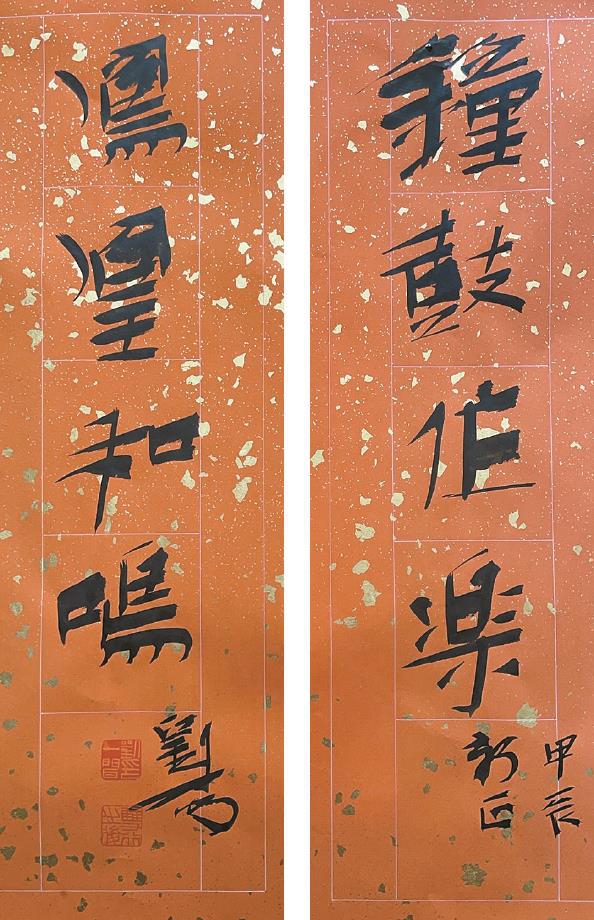 鐘鼓作楽
甲辰
新正
鳳凰和鳴
劉